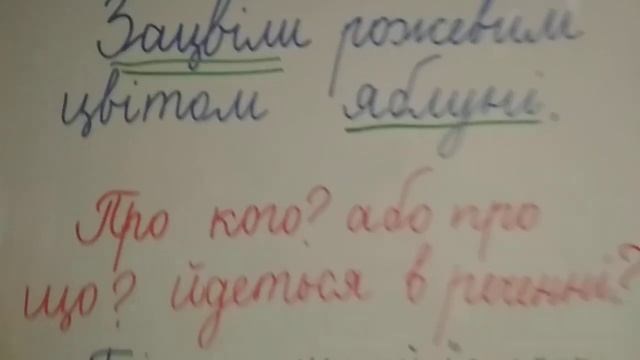 Зацвіли рожевим
цвітом яблуні.
Про кого? або про
що? йдеться в реченні?